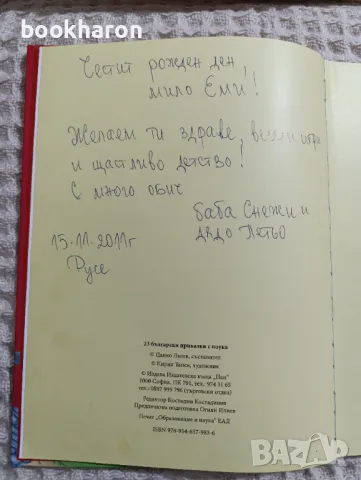 bookharon
Честит рожден ден,
мило Еми!
Желаем ти здраве, весели игри
и щастливо детство!
С много обич
баба Снежи и
дядо Петьо
15.11.2011г
Русе
23 български приказки с поука
© Цанко Лалев, съставител
© Кирил Танев, художник
© Издава Издателска къща „Пан“
1000 София, ПК 791, тел. 974 31 65
тел.: 0887 999 796 (търговски отдел)
Редактор Костадин Костадинов
Предпечатна подготовка Огнян Илиев
Печат „Образование и наука“ ЕАД
ISBN 978-954-657-983-6
BAZAR